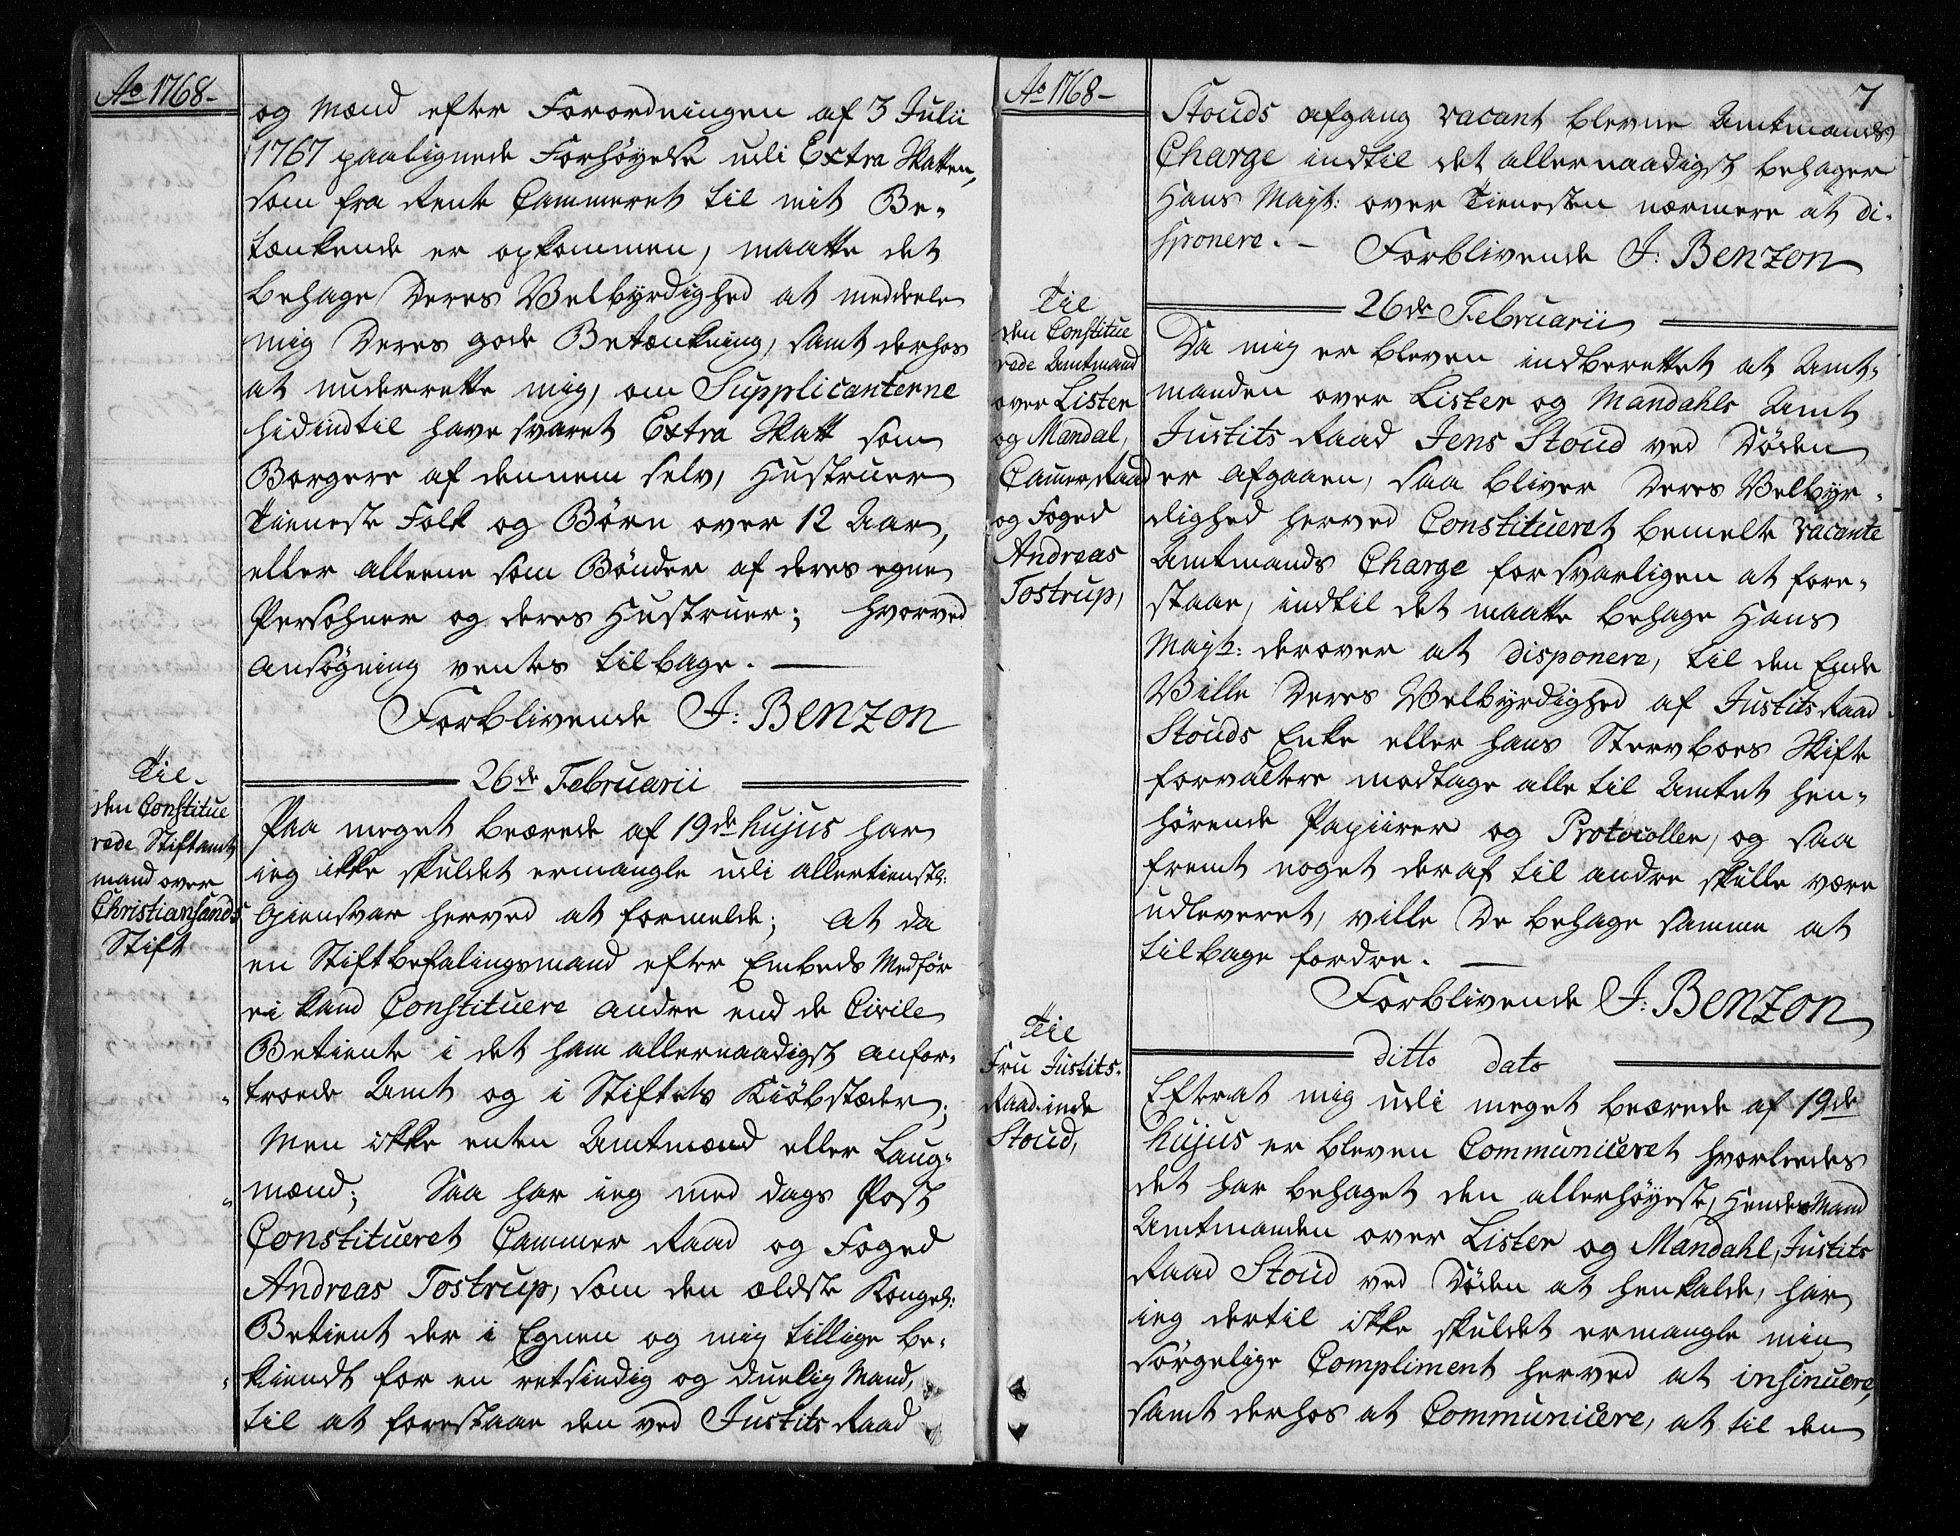 Ao 1768-
og Mænd efter Forordningen af 3 Julii
1767 paalignede Forhøyelse udi Extra Skatten,
som fra Rente Cammeret til mit Be-
tænkende er opkommen, maatte det
behage Deres Velbyrdighed at meddeele
mig Deres gode Betænkning, samt derhos
at underrette mig, om Supplicanterne
hidindtil have svaret Extra Skatt som
Borgere af dennem selv, Hustruer
Tieneste Folk og Børn over 12 Aar,
eller alleene som Bønder af deres egne
Persohner og deres Hustruer; hvorved
Ansøgning ventes tilbage.
Forblivende J: Benzon
26de Februarii
Til
den Constitue
rede Stiftamt
mand over
Christiansands
Stift
Paa meget beærede af 19de hujus har
ieg ikke skuldet ermangle udi allertienstl:
Giensvar herved at formelde; at da
en Stiftbefalingsmand efter Embeds Medfør
ei kand Constituere andre end de Civile
Betiente i det ham allernaadigst anfor-
troede Amt og i Stiftets Kiøbstæder;
Men ikke enten Amtmænd eller Laug-
mænd; Saa har ieg med dags Post
Constitueret Cammer Raad og Foged
Andreas Tostrup, som den ældste Kongel:
Betient der i Egnen og mig tillige be-
kiendt for en retsindig og duelig Mand,
til at forestaae den ved Justits Raad
Ao 1768-
7
Stouds afgang vacant blevne Amtmands
Charge indtil det allernaadigst behager
Hans Mayt: over Tienesten nærmere at di-
sponere. -
Forblivende J: Benzon
26de Februarii
Til
den Constitue
rede Amtmand
over Lister
og Mandal,
Camer Raad
og Foged
Andreas
Tostrup,
Da mig er bleven indberettet at Amt-
manden over Lister og Mandahls Amt
Justits Raad Jens Stoud ved Døden
er afgaaen, saa bliver Deres Velbyr-
dighed herved Constitueret bemelte vacante
Amtmands Charge forsvarligen at fore-
staae, indtil det maatte behage Hans
Mayt: derover at disponere, til den Ende
Ville Deres Velbyrdighed af Justits Raad
Stouds Enke eller hans Stervboes Skifte
forvaltere modtage alle til Amtet hen-
hørende Papiirer og Protocoller, og saa
fremt noget deraf til andre skulle være
udleveret, ville De behage samme at
tilbage fordre.
Forblivende J: Benzon
ditto dato
Til
Fru Justits-
Raad-inde
Stoud,
Efterat mig udi meget beærede af 19de
hujus er bleven Communiceret hvorleedes
det har behaget den allerhøyeste, Hendes Mand
Amtmanden over Lister og Mandahl, Justits
Raad Stoud ved Døden at henkalde, har
ieg dertil ikke skuldet ermangle min
sørgelige Compliment herved at insinuere,
samt derhos at Communicere, at til den